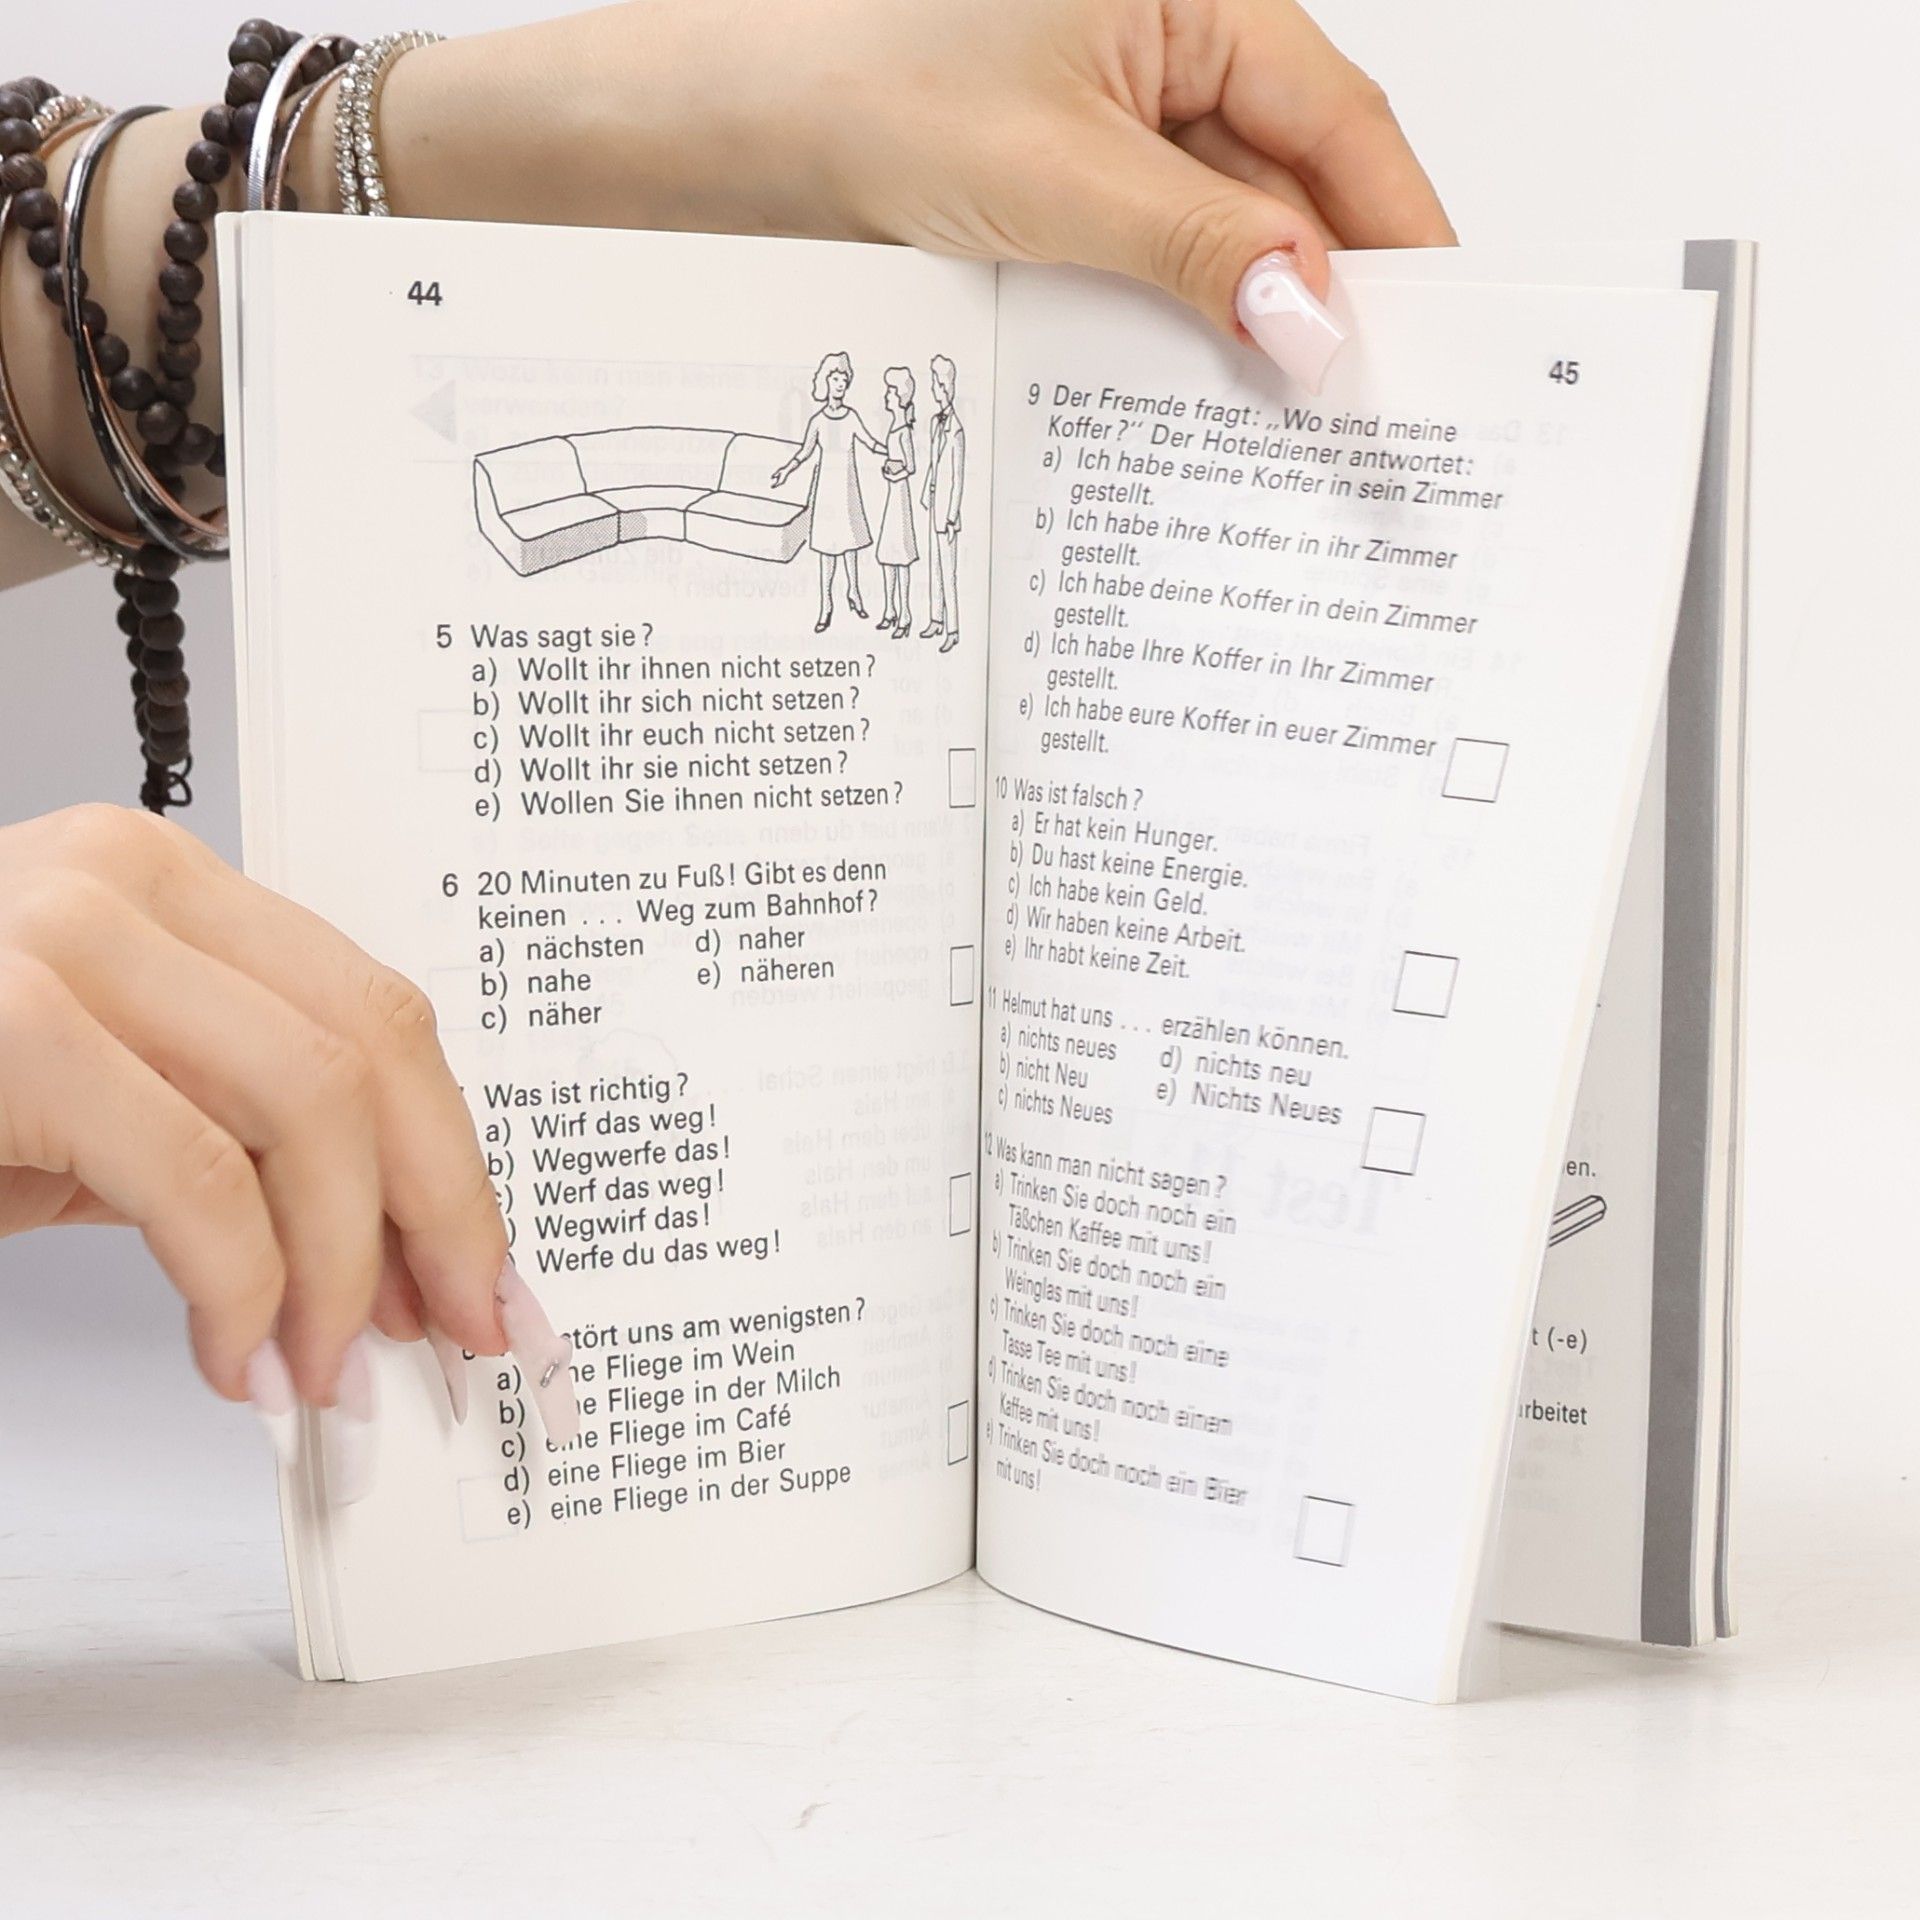 44
5 Was sagt sie?
a) Wollt ihr ihnen nicht setzen?
b) Wollt ihr sich nicht setzen?
c) Wollt ihr euch nicht setzen?
d) Wollt ihr sie nicht setzen?
e) Wollen Sie ihnen nicht setzen?
6 20 Minuten zu Fuß! Gibt es denn
keinen ... Weg zum Bahnhof?
a) nächsten d) naher
b) nahe e) näheren
c) näher
Was ist richtig?
a) Wirf das weg!
b) Wegwerfe das!
) Werf das weg!
) Wegwirf das!
Werfe du das weg!
stört uns am wenigsten?
a) ne Fliege im Wein
b) ne Fliege in der Milch
c) eine Fliege im Café
d) eine Fliege im Bier
e) eine Fliege in der Suppe
45
9 Der Fremde fragt: „Wo sind meine
Koffer?" Der Hoteldiener antwortet:
a) Ich habe seine Koffer in sein Zimmer
gestellt.
b) Ich habe ihre Koffer in ihr Zimmer
gestellt.
c) Ich habe deine Koffer in dein Zimmer
gestellt.
d) Ich habe Ihre Koffer in Ihr Zimmer
gestellt.
e) Ich habe eure Koffer in euer Zimmer
gestellt.
10 Was ist falsch?
a) Er hat kein Hunger.
b) Du hast keine Energie.
c) Ich habe kein Geld.
d) Wir haben keine Arbeit.
e) Ihr habt keine Zeit.
11 Helmut hat uns ... erzählen können.
a) nichts neues d) nichts neu
b) nicht Neu e) Nichts Neues
c) nichts Neues
12 Was kann man nicht sagen?
a) Trinken Sie doch noch ein
Täßchen Kaffee mit uns!
b) Trinken Sie doch noch ein
Weinglas mit uns!
c) Trinken Sie doch noch eine
Tasse Tee mit uns!
d) Trinken Sie doch noch einem
Kaffee mit uns!
e) Trinken Sie doch noch ein Bier
mit uns!
en.
t (-e)
rbeitet